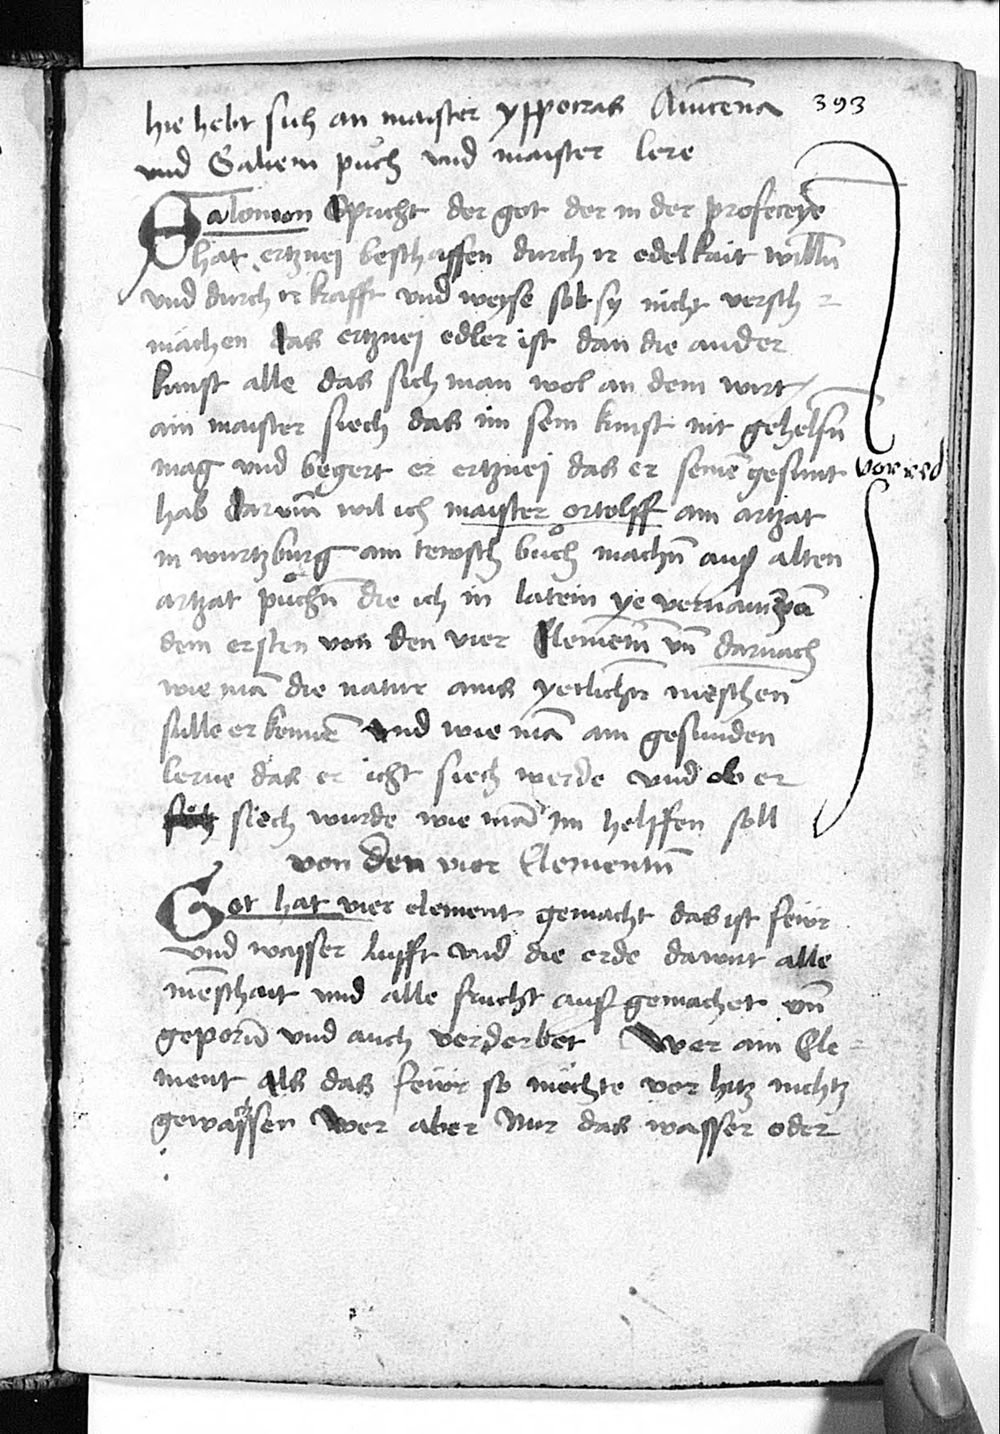 hie hebt sich an maister yppocras Auicena 393
und Galieni půch und maister lere
Salomon Spricht der got der in der profeceye
hat ertznej beschaffen durch ir edelkait willn̄
und durch ir krafft und weyse solt sy nicht versch-
mächen das ertznej edler ist dan die ander
kunst alle das sich man wol an dem wirt
ain maister siech das im sein kunst nit gehelfn̄
mag und begert er ertznej das er seinē gesunt vorred
hab darum̄ wil ich maister ortolff ain artzat
in wurtzburg ain tewsch bůch machn̄ auß alten
artzat půchn̄ die ich in latein ye vernam zeā
dem ersten von den vier Elemetn̄ vn̄ darnach
wie mā die natur ains yetlichn̄ meschen
sulle erkennē und wie mā ain gesunden
lerne das er icht siech werde und ob er
siech wurde wie mā im helffen soll
von den vier Elementn̄
Got hat vier element gemacht das ist fewr
und wasser lufft und die erde damit alle
mēschait und alle frucht auß gemachet vn̄
geporn̄ und auch verderbet Wer ain Ele-
ment als das fewr so möchte vor hitz nichtz
gewachssen Wer aber Nur das wasser oder